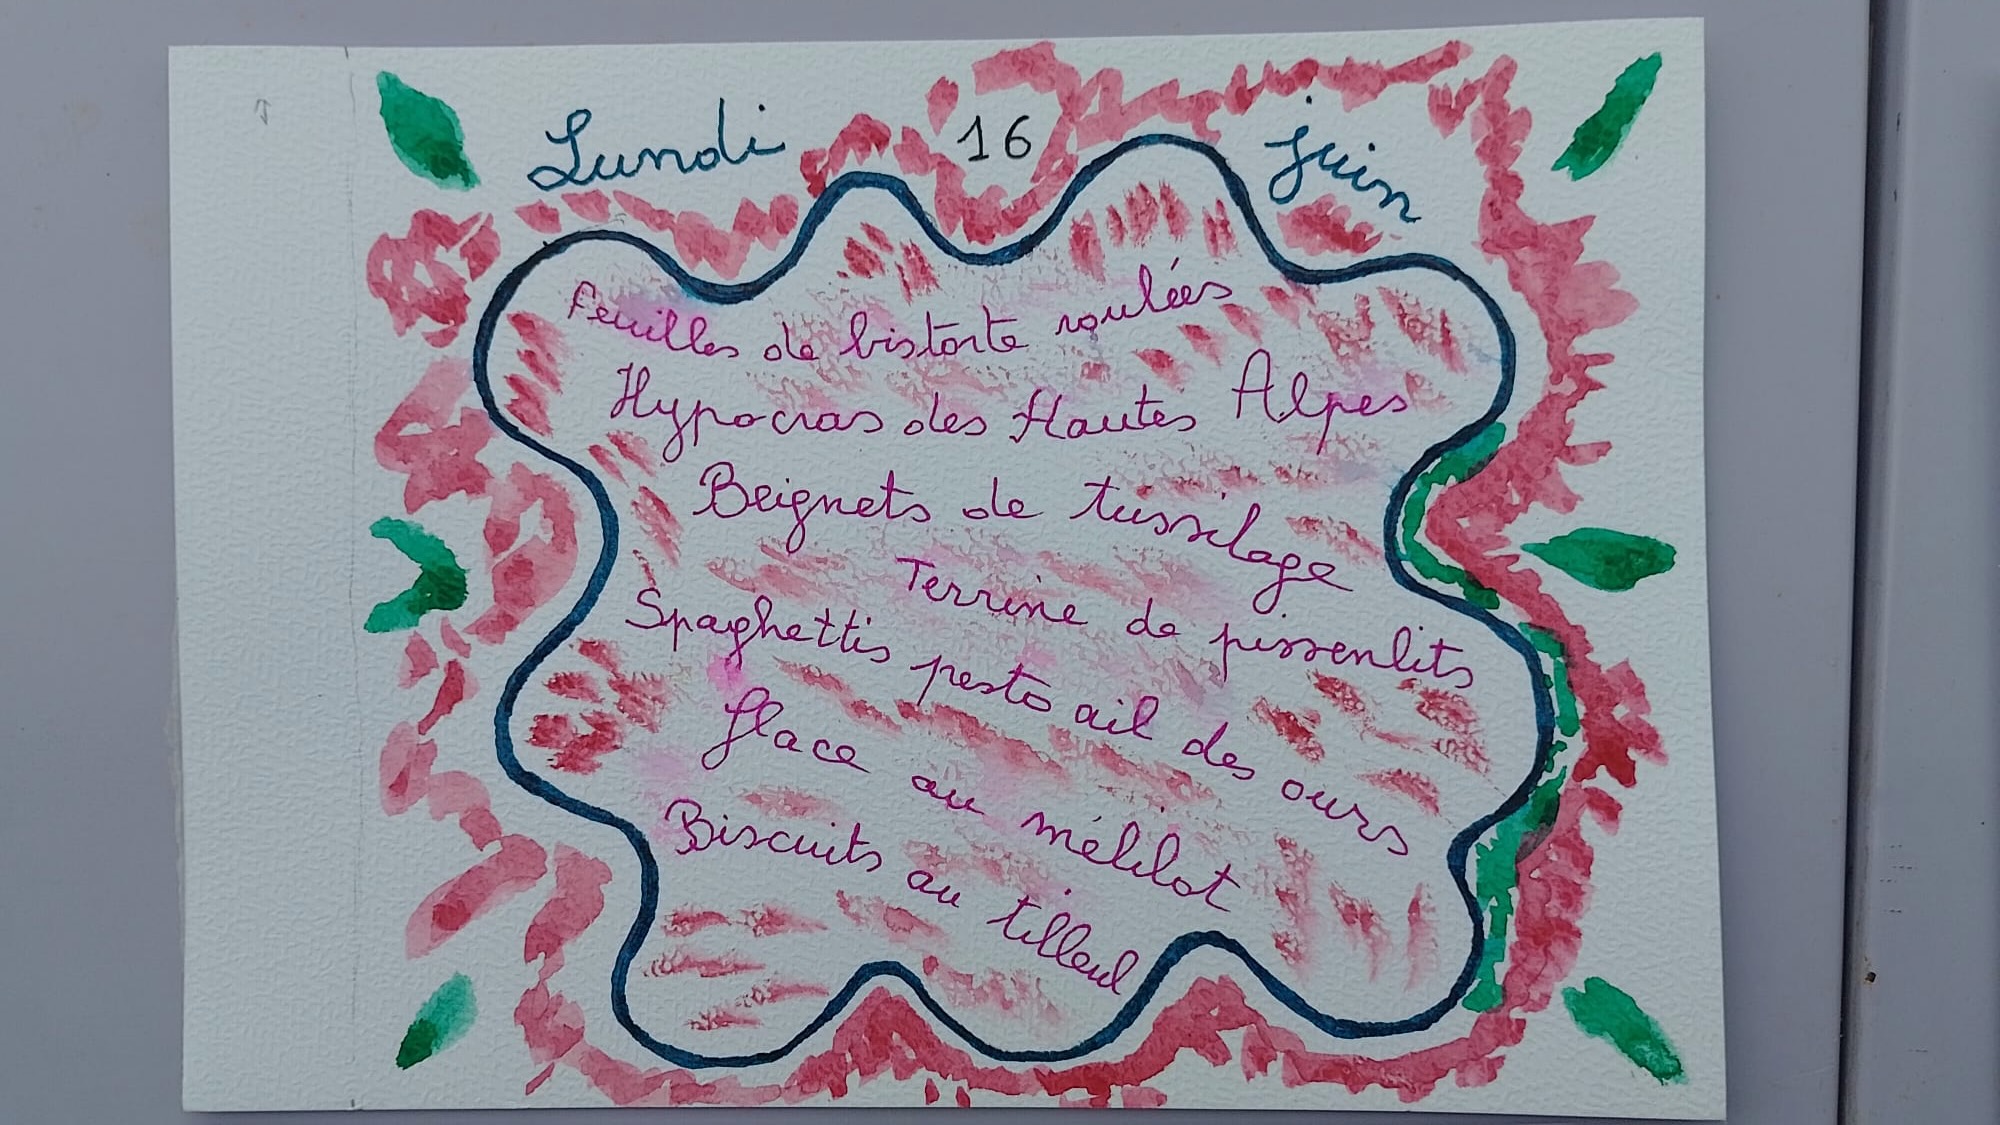 Lundi 16 juin
Feuilles de bistorte roulées
Hypocras des Hautes Alpes
Beignets de tussilage
Terrine de pissenlits
Spaghettis pesto ail des ours
Glace au mélilot
Biscuits au tilleul